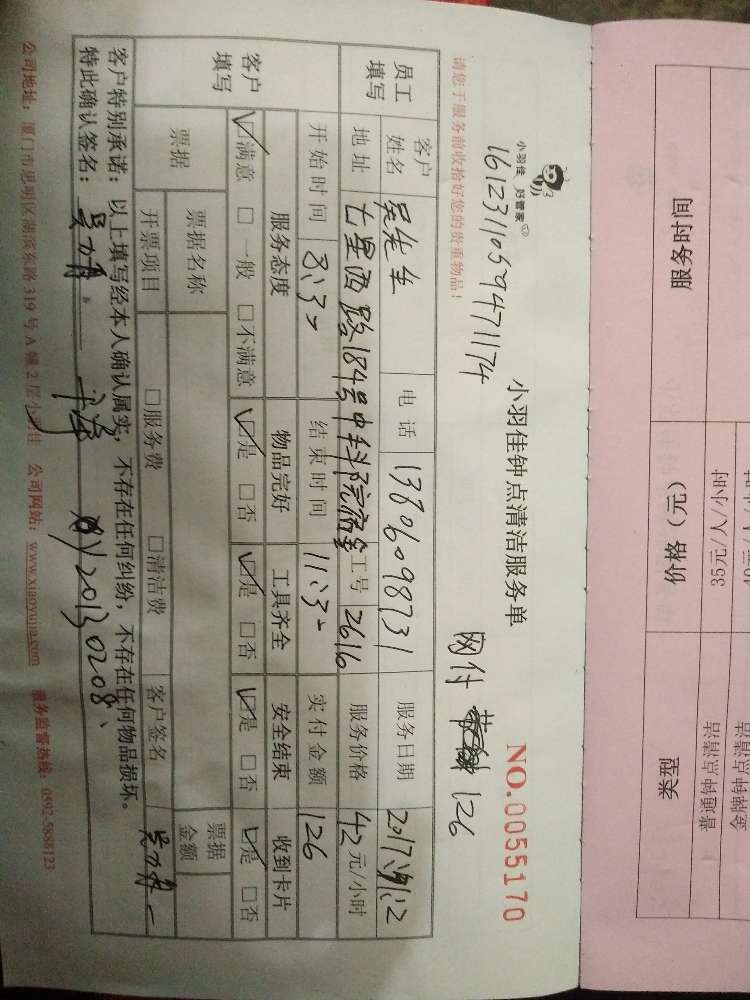 小羽佳 好管家
16123110594471174
小羽佳钟点清洁服务单
NO.0055170
请您于服务前收拾好您的贵重物品！
网付 126
员工填写
客户姓名 吴先生 电话 13806098731 服务日期
地址 七星西路184号中科院宿舍 工号 2616 服务价格 42元/小时
开始时间 8:30 结束时间 11:30 实付金额 126
客户填写
服务态度 物品完好 工具齐全 安全结束 收到卡片
☑满意 □一般 □不满意 ☑是 □否 ☑是 □否 ☑是 □否 ☑是 □否
票据 票据名称 票据金额
开票项目 □服务费 □清洁费 客户签名
客户特别承诺：以上填写经本人确认属实，不存在任何纠纷，不存在任何物品损坏。
特此确认签名：
20130208、
公司地址：厦门市思明区湖滨东路319号A幢2层小羽佳 公司网站：www.xiaoyujia.com 服务监督热线：0592-5888123
服务时间 价格（元） 类型
35元/人/小时 普通钟点清洁
金牌钟点清洁